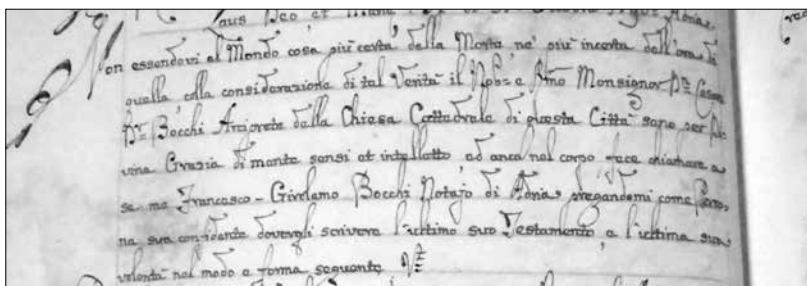 Laus Deo et Maria
Non essendovi al Mondo cosa più certa della Morte ne' più incerta dell'ora di
quella, colla considerazione di tal Verità il Nob:e e Rmo Monsignor
Bocchi Arciprete della Chiesa Cattedrale di questa Città sano per Di-
vina Grazia di mente sensi et intelletto ed anco nel corpo fece chiamare a
se me Francesco-Girolamo Bocchi Notajo di Adria, pregandomi come Perso-
na sua confidente dovergli scrivere l'ultimo suo Testamento, e l'ultima sua
volontà nel modo e forma seguente